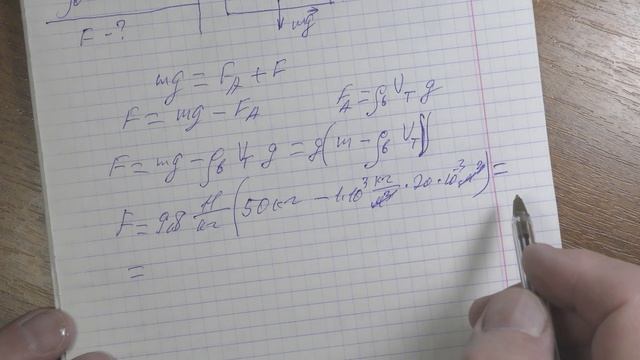 F - ?
mg
mg = F_A + F
F = mg - F_A
F_A = ρ_в V_т g
F = mg - ρ_в V_т g = g(m - ρ_в V_т)
F = 9,8 Н/кг (50кг - 1·10³ кг/м³ · 20 · 10⁻³ м³) =
=